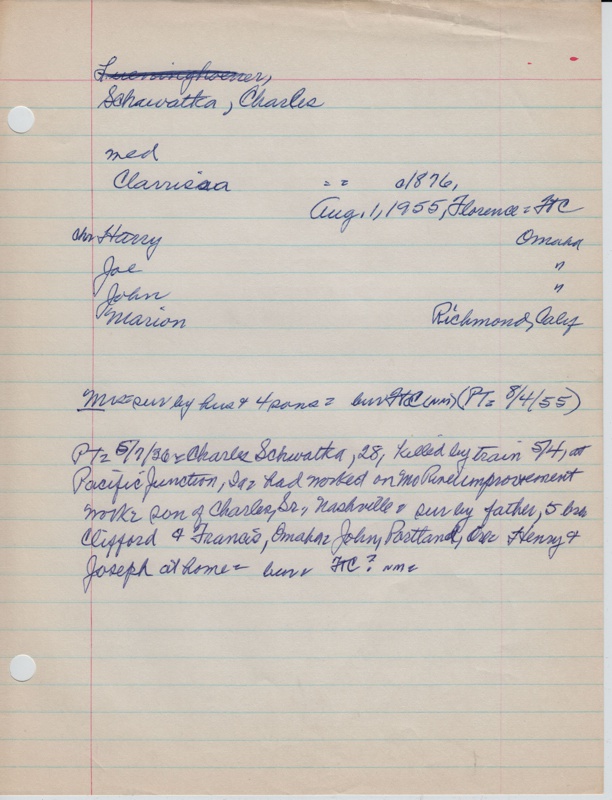 Lueninghoener,
Schawatka, Charles
med
Clarrissa = = c1876,
Aug. 1, 1955, Florence = FtC
chn Harry Omaha
Joe "
John "
Marion Richmond, Calif
Mrs = sur by hus + 4 sons = bur FtC (nm) (PT = 8/4/55)
PT = 5/7/36 = Charles Schwatka, 28, killed by train 5/4, at
Pacific Junction, Ia = had worked on Mo River improvement
work = son of Charles, Sr., Nashville = sur by father, 5 bros
Clifford & Francis, Omaha = John, Portland, Ore = Henry &
Joseph at home = bur = FtC? nm =